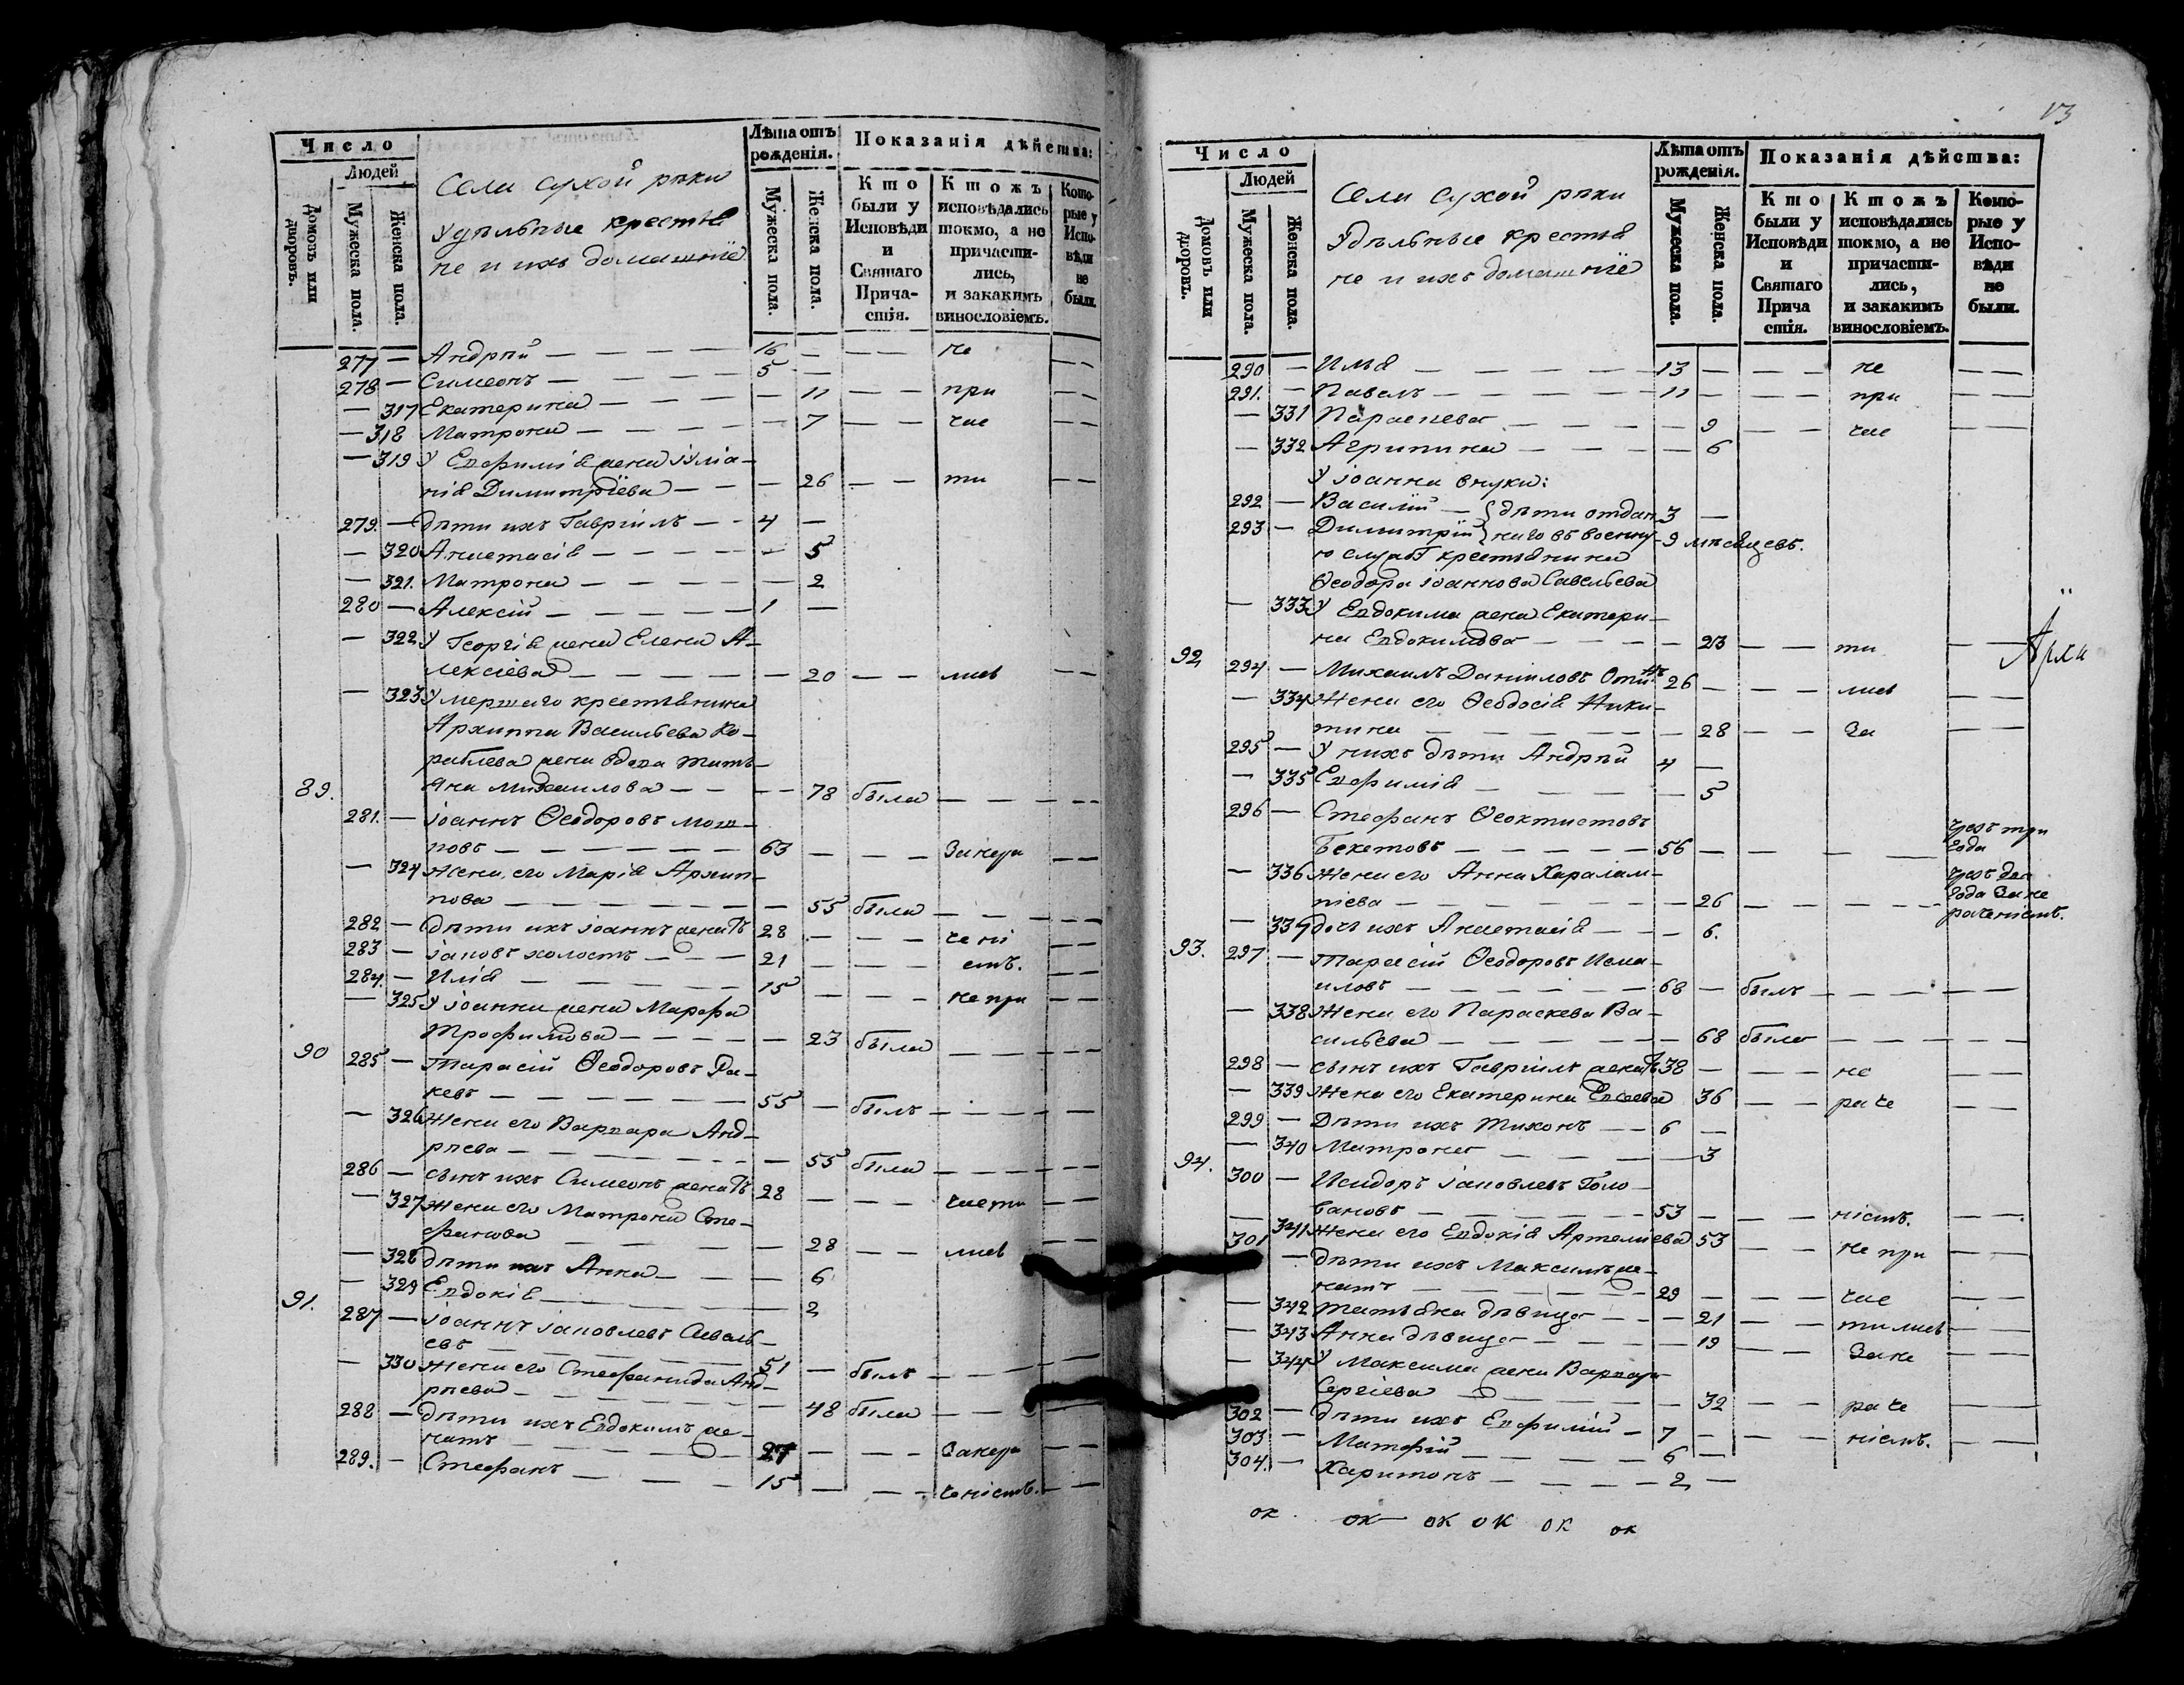 Число
Людей
Домовъ или дворовъ.
Мужеска пола.
Женска пола.
Села сухой рѣки
Удѣльные крестья
не и ихъ домашніе
Лѣта отъ рожденія.
Мужеска пола.
Женска пола.
Показанія дѣйства:
Кто были у Исповѣди и Святаго Причастія.
Ктожъ исповѣдались токмо, а не причастились, и закакимъ винословіемъ.
Которые у Исповѣди не были.
277 — Андрѣй — — — — 16 — — — не — —
278 — Симеонъ — — — — 5 —
— 317 Екатерина — — — — 11 — — при — —
— 318 Матрона — — — — 7 — — час — —
— 319 У Евфимія жена Іуліа-
нія Димитріева — — — 26 — — ти — —
279. — Дѣти ихъ Гавріилъ — — 4 —
— 320 Анастасія — — — — 5
— 321. Матрона — — — — — 2
280 — Алексій — — — — 1 —
— 322 У Георгія жена Елена А-
лексіева — — — — — 20 — — лись — —
— 323 Умершаго крестьянина
Архиппа Васильева Ко-
раблева жена вдова Тать-
89. яна Михаилова — — — — 78 была — — — — —
281. — Іоаннъ Ѳеодоровъ Мош-
новъ — — — — — — 63 — — — Занера — —
— 324 Жена его Марія Архип-
пова — — — — — — — 55 была — — — — —
282 — Дѣти ихъ Іоаннъ женатъ 28 — — — чені — —
283 — Іаковъ холостъ — — — 21 — — — емъ. — —
284. — Илія — — — — — 15 — — — не при — —
— 325 У Іоанна жена Марфа
Трофимова — — — — — 23 была — — — — —
90 285 — Тарасій Ѳеодоровъ Ра-
кевъ — — — — — — 55 — былъ — — — — —
— 326 Жена его Варвара Анд-
рѣева — — — — — — — 55 была — — — — —
286 — сынъ ихъ Симеонъ женатъ 28 — — — части — —
— 327 Жена его Матрона Сте-
фанова — — — — 28 — — лись — —
— 328 Дѣти ихъ Анна — — — 6
— 329 Евдокія — — — — 2
91. 287 — Іоаннъ Іаковлевъ Савель-
евъ — — — — — 51 — былъ — — — — —
— 330 Жена его Стефанида Анд-
рѣева — — — — — — 48 была — — — — —
288 — Дѣти ихъ Евдокимъ же-
натъ — — — — 27 — — — Занера — —
289. — Стефанъ — — — 15 — — — ченіемъ. — —
13
Число
Людей
Домовъ или дворовъ.
Мужеска пола.
Женска пола.
Села сухой рѣки
Удѣльные крестья
не и ихъ домашніе
Лѣта отъ рожденія.
Мужеска пола.
Женска пола.
Показанія дѣйства:
Кто были у Исповѣди и Святаго Прича стія.
Ктожъ исповѣдались токмо, а не причастились, и закакимъ винословіемъ.
Которые у Исповѣди не были.
290 — Илья — — — — — 13 — — — — не — —
291. — Павелъ — — — — — 11 — — — — при — —
— 331 Параскева — — — — — 9 — — час — —
— 332 Агрипина — — — — — 6
У Іоанна внуки:
292 — Василій — дѣти отдан- 3 —
293 — Димитрій наго въ военну- 9 мѣсяцевъ.
ю службу крестьянина
Ѳеодора Іоаннова Савельева
— 333 У Евдокима жена Екатери-
на Евдокимова — — — — 23 — — ти — —
92 294 — Михаилъ Даніиловъ 26 — — — лись — —
— 334 Жена его Ѳеодосія Ники-
тина — — — — — 28 — — За — —
295 — У нихъ дѣти Андрѣй 4 —
— 335 Евфимія — — — — — 5
296 — Стефанъ Ѳеоктистовъ
Бекетовъ — — — — — 56 — — — — чрезъ три года
— 336 Жена его Анна Харалам-
піева — — — — — — 26 — — — — чрезъ два года Зане раченіемъ.
— 337 дочь ихъ Анастасія — — — 6.
93. 297 — Тарасій Ѳеодоровъ Исма-
иловъ — — — — — — 68 — былъ — — — — —
— 338 Жена его Параскева Ва-
сильева — — — — — — 68 была — — — — —
298 — сынъ ихъ Гавріилъ женатъ 38 — — — не — —
— 339 Жена его Екатерина Евсеева 36 — — раче — —
299 — Дѣти ихъ Тихонъ — — 6 —
— 340 Матрона — — — — — 3
94. 300 — Исидоръ Іаковлевъ Голо-
вановъ — — — — — — 53 — — — ніемъ. — —
— 341 Жена его Евдокія Артеміева 53 — — не при — —
301 — Дѣти ихъ Максимъ же-
натъ — — — — — 29 — — — час — —
— 342 Татьяна дѣвица — — — 21 — — тились — —
— 343 Анна дѣвица — — — — 19 — — Зане — —
— 344 У Максима жена Варвара
Сергіева — — — — — 32 — — раче — —
302 — Дѣти ихъ Евфимій — 7 — — — ніемъ. — —
303 — Матфій — — — — 6 —
304. — Харитонъ — — — — 2 —
ок. ок ок ок ок ок